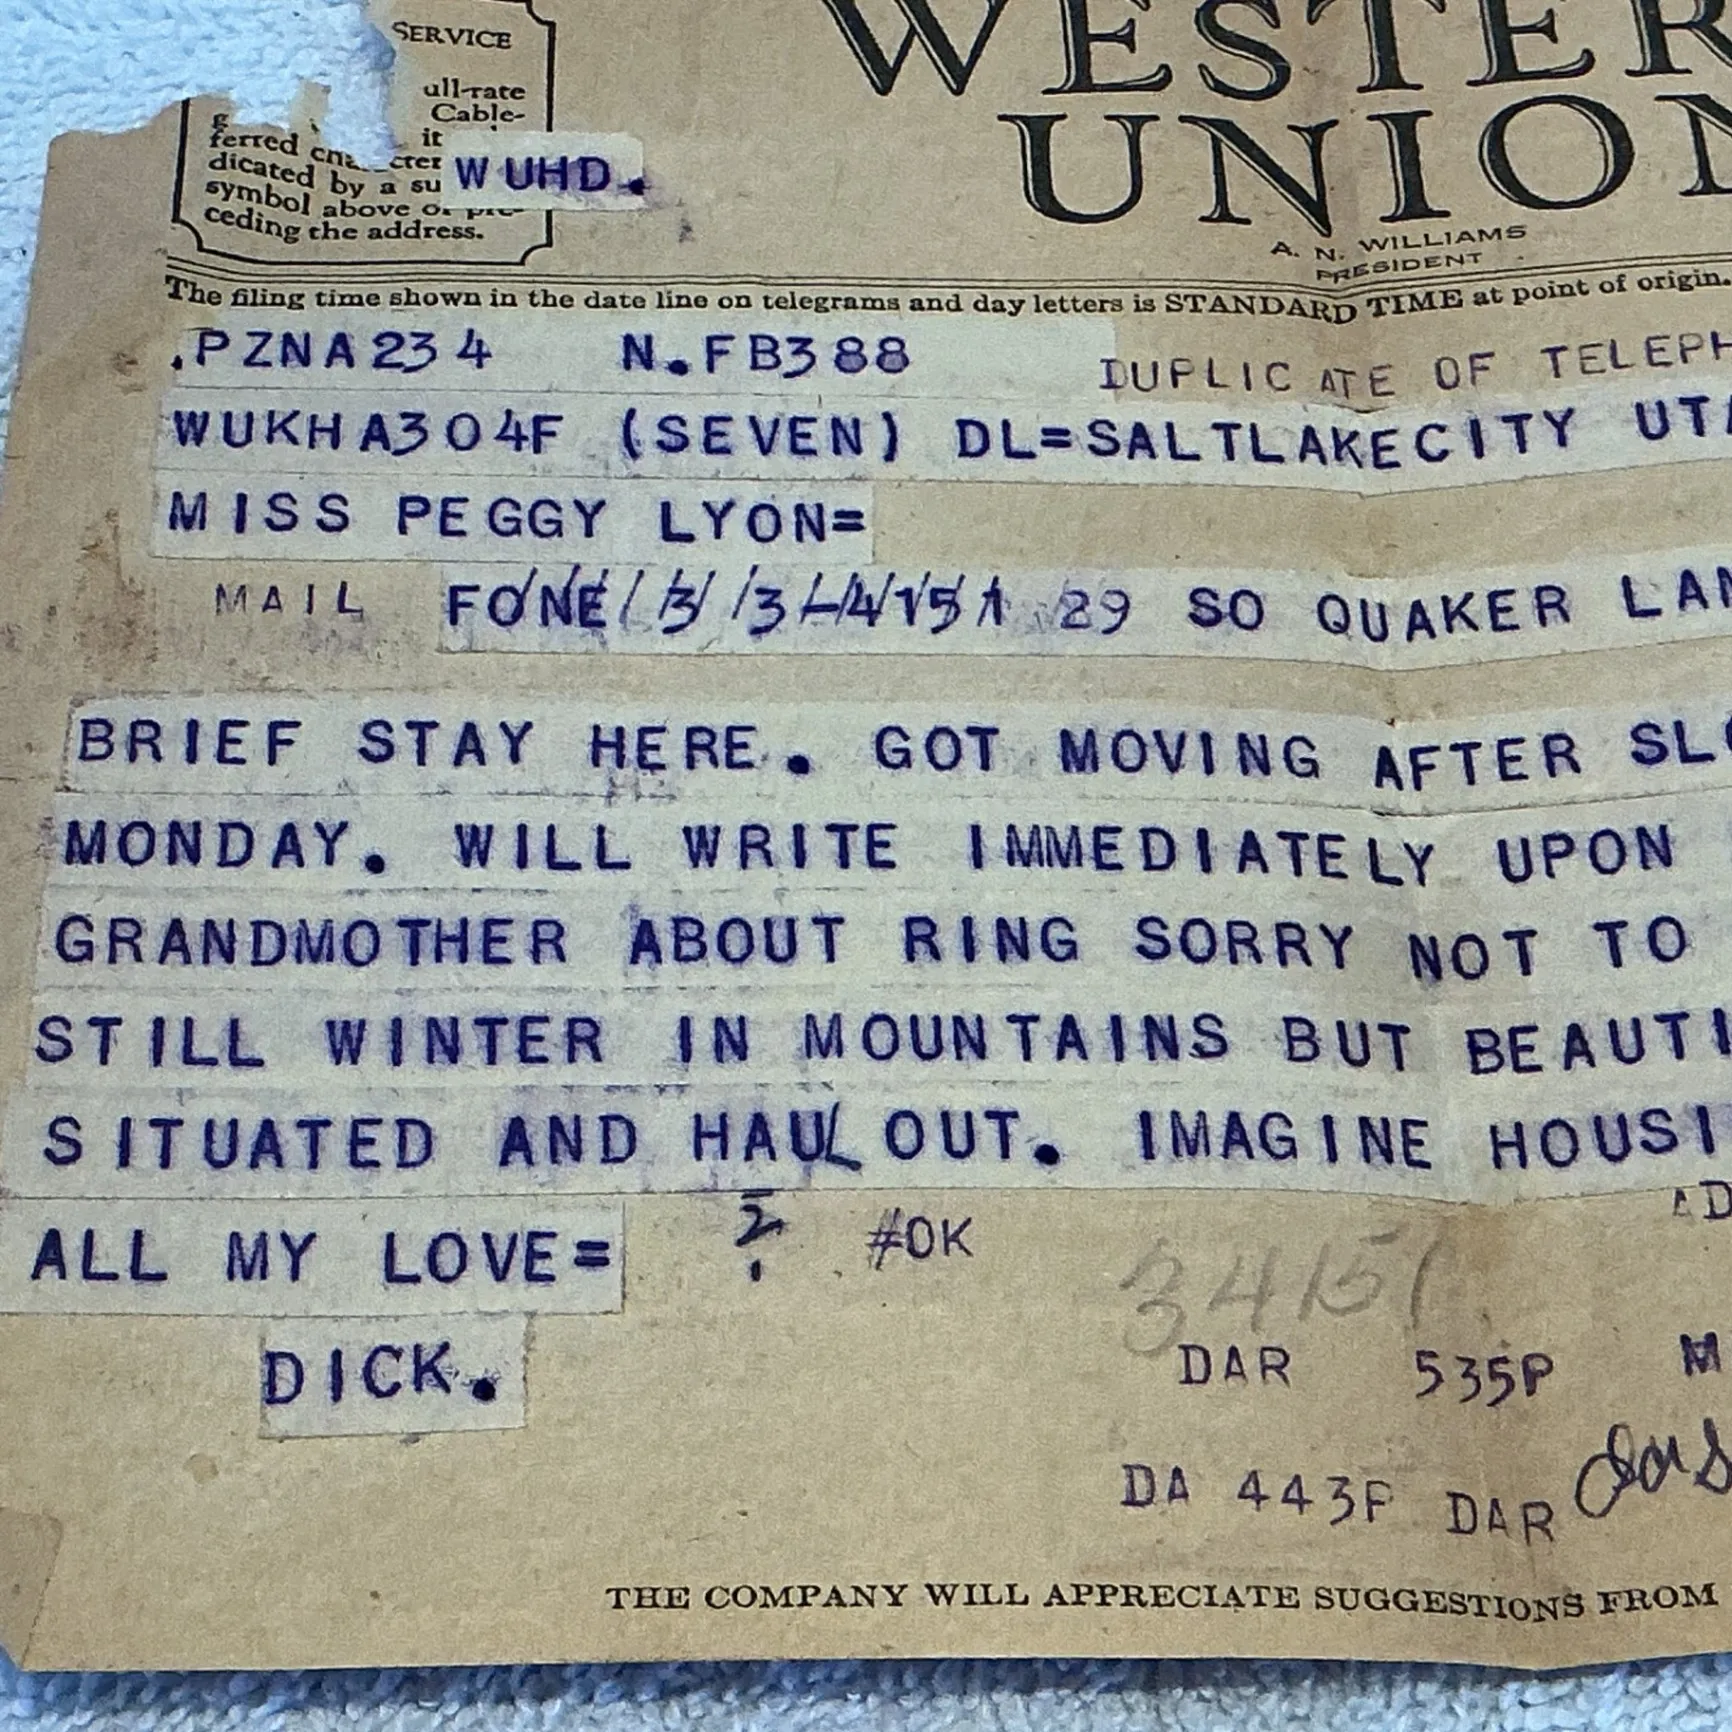 SERVICE
ull-rate
Cable-
ferred
dicated by a su
symbol above
ceding the address.
WUHD.
WESTER
UNION
A. N. WILLIAMS
PRESIDENT
The filing time shown in the date line on telegrams and day letters is STANDARD TIME at point of origin.
.PZNA234 N.FB388 DUPLICATE OF TELEPH
WUKHA304F (SEVEN) DL=SALTLAKECITY UTA
MISS PEGGY LYON=
MAIL FONE/3/34151 29 SO QUAKER LAN
BRIEF STAY HERE. GOT MOVING AFTER SLO
MONDAY. WILL WRITE IMMEDIATELY UPON
GRANDMOTHER ABOUT RING SORRY NOT TO
STILL WINTER IN MOUNTAINS BUT BEAUTI
SITUATED AND HAUL OUT. IMAGINE HOUSI
ALL MY LOVE= #OK
34151
DICK.
DAR 535P M
DA 443P DAR
THE COMPANY WILL APPRECIATE SUGGESTIONS FROM